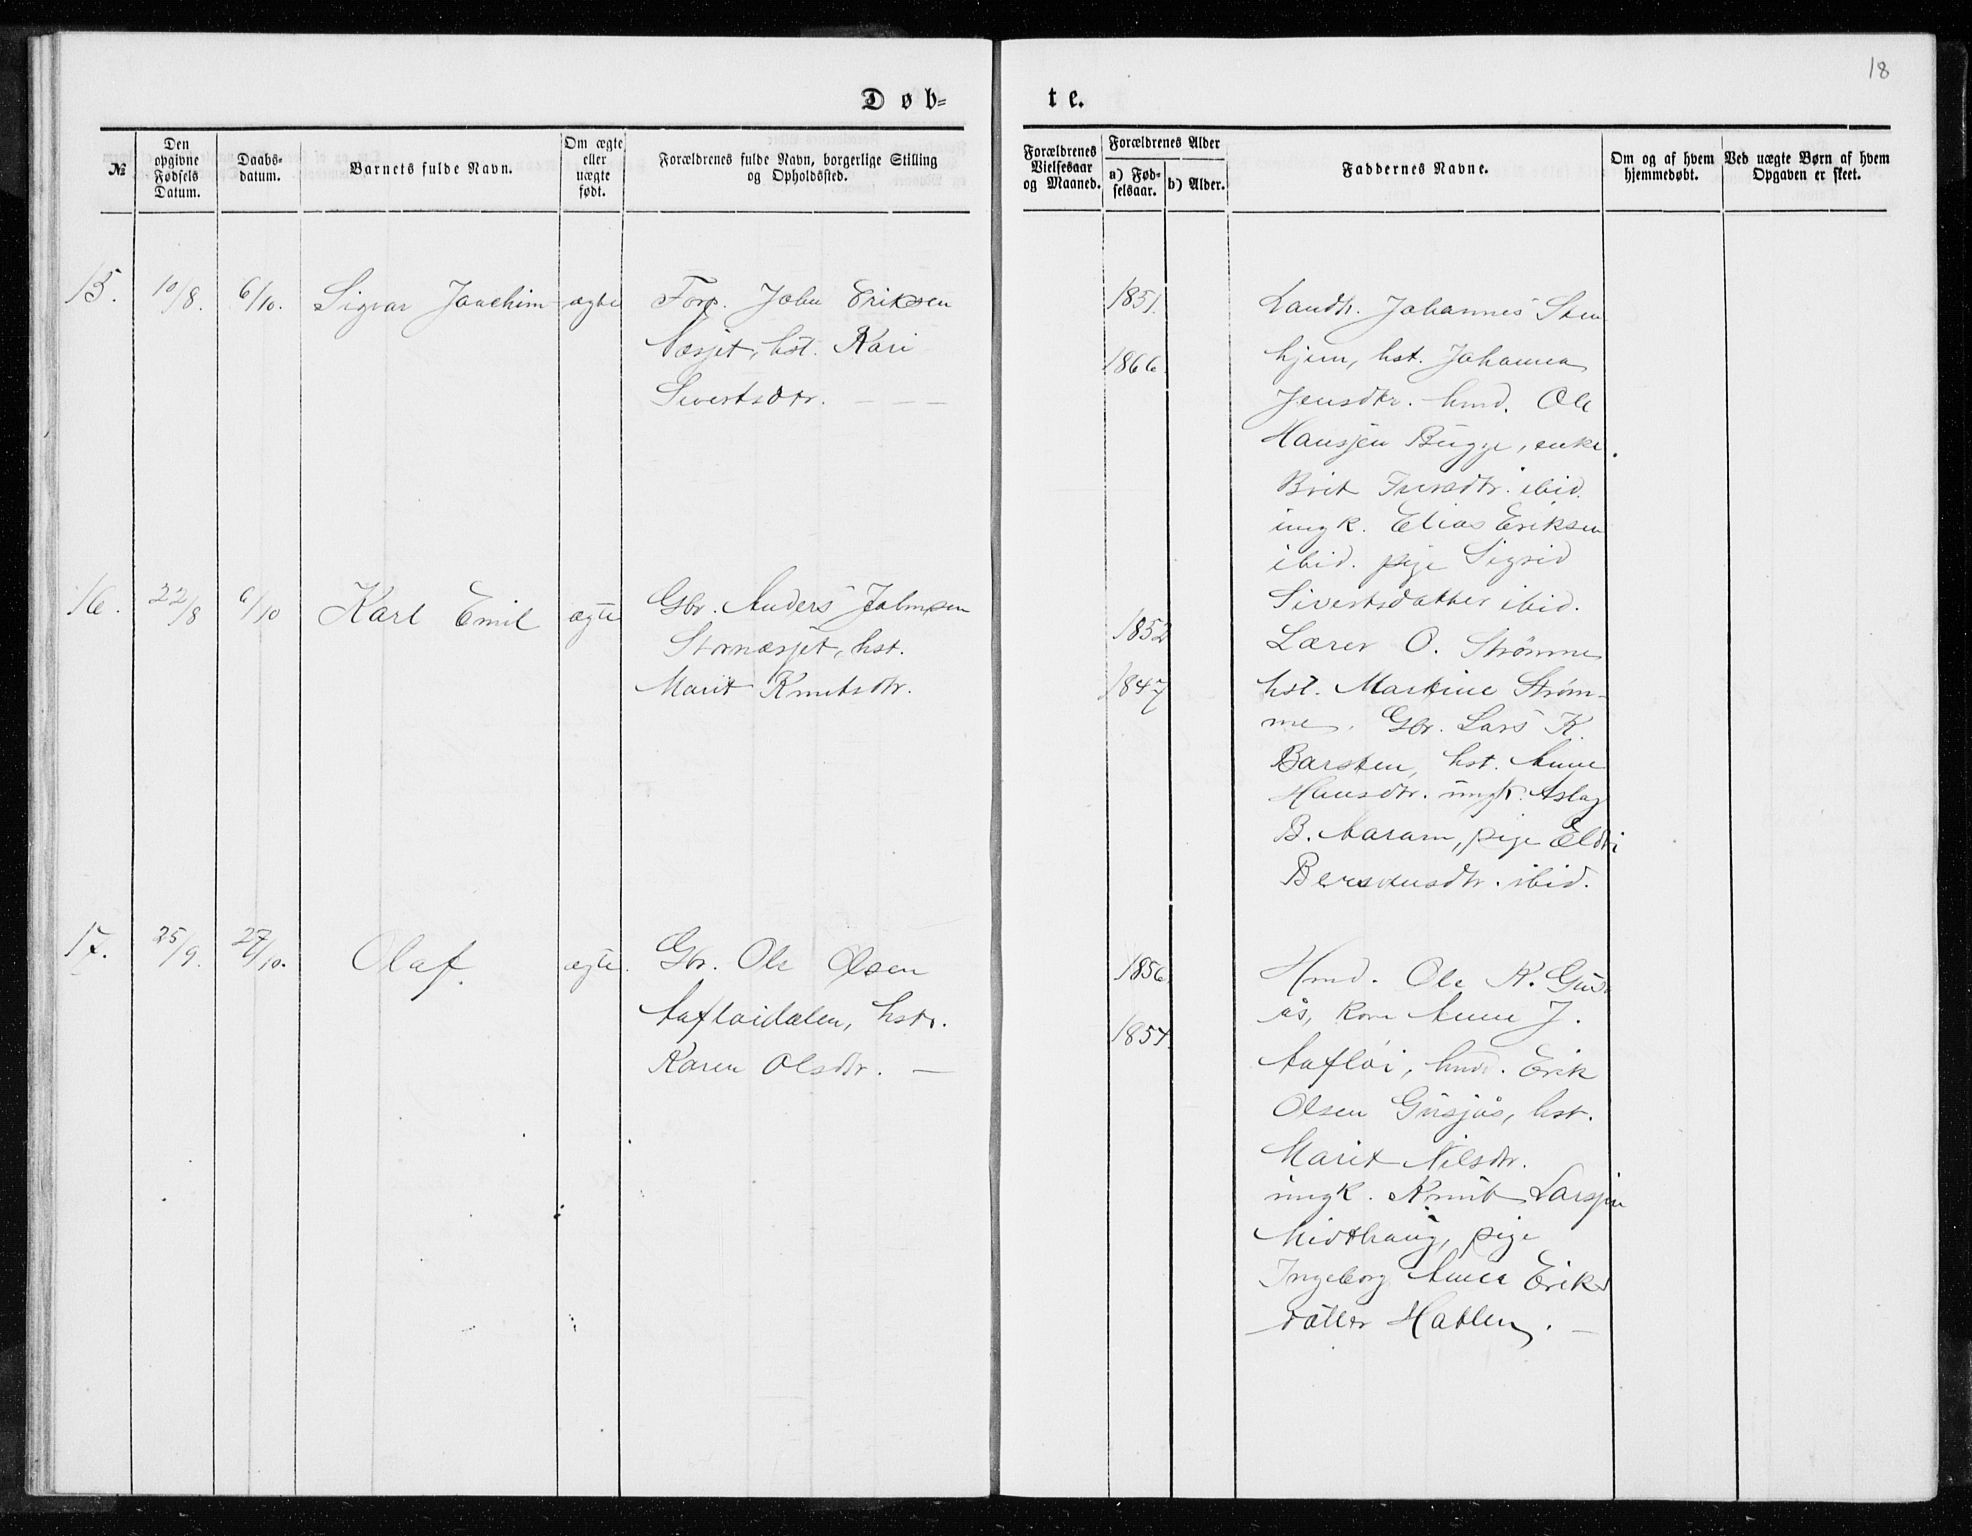 18
Døb-
te.
№
Den opgivne Fødsels Datum.
Daabs-datum.
Barnets fulde Navn.
Om ægte eller uægte født.
Forældrenes fulde Navn, borgerlige Stilling og Opholdssted.
Forældrenes Vielsesaar og Maaned.
Forældrenes Alder
a) Fødselsaar.
b) Alder.
Faddernes Navne.
Om og af hvem hjemmedøbt.
Ved uægte Børn af hvem Opgaven er skeet.
15.
10/8.
6/10.
Sigvar Joachim
ægte
Forp. John Eriksen
Næsjet, hst. Kari
Sivertsdtr. — — —
1851.
1866.
Landh. Johannes Sten
hjem, hst. Johanna
Jensdtr. hmd. Ole
Hansjen Bugge, enke
Brit Iversdtr. ibid.
ungk. Elias Eriksen
ibid. pige Sigrid
Sivertsdatter ibid.
16.
22/8
6/10
Karl Emil
ægte
Gbr. Anders Johnsen
Stornæsjet, hst.
Marit Knutsdtr.
1852
1847
Lærer O. Strømme
hst. Martine Strøm-
me. Gbr. Lars K.
Barsten, hst. Anne
Hansdtr. ungk. Aslag
B. Aaram, pige Eldri
Bersvensdtr. ibid.
17.
25/9.
27/10.
Olaf.
ægte.
Gbr. Ole Olsen
Aafloidalen, hstr.
Karen Olsdtr. —
1856
1854.
Hmd. Ole K. Gus-
ås, kone Anne J.
Aafloi, hmd. Erik
Olsen Gusjås, hst.
Marit Nilsdtr.
ungk. Knut Larsjen
Midthaug, pige
Ingeborg Anna Eriks
datter Hatlen. —